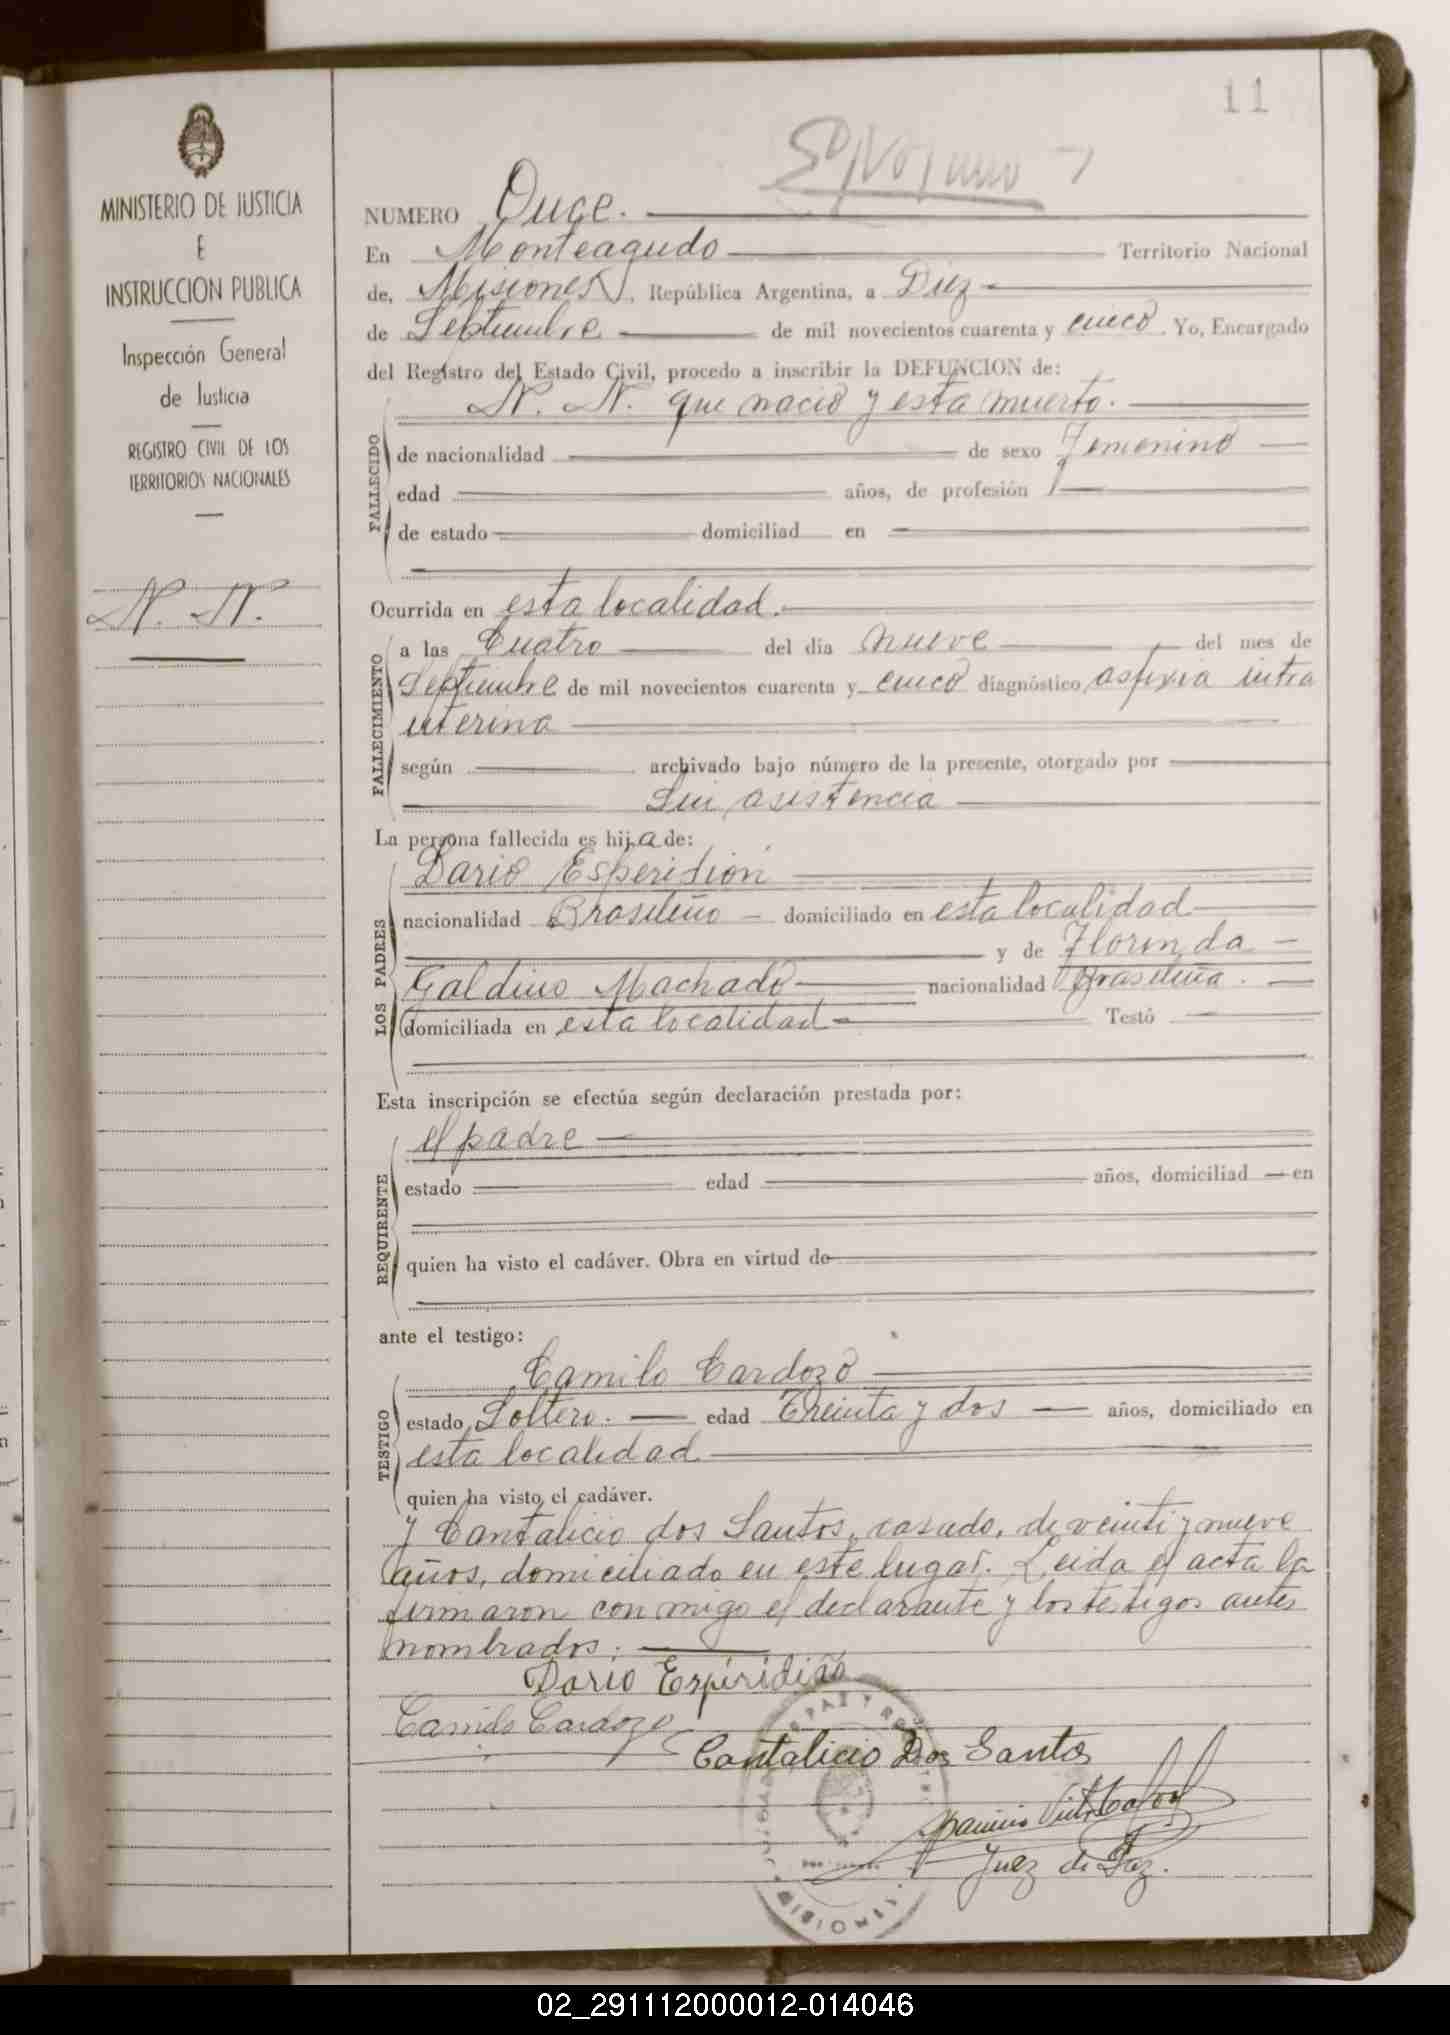 11
MINISTERIO DE JUSTICIA
E
INSTRUCCION PUBLICA
Inspección General
de Justicia
REGISTRO CIVIL DE LOS
TERRITORIOS NACIONALES
N. N.
NUMERO Once.
En Monteagudo Territorio Nacional
de, Misiones, República Argentina, a Diez
de Septiembre de mil novecientos cuarenta y cinco. Yo, Encargado
del Registro del Estado Civil, procedo a inscribir la DEFUNCION de:
N. N. que nació y esta muerto.
FALLECIDO
de nacionalidad de sexo Femenino
edad años, de profesión
de estado domiciliad en
Ocurrida en esta localidad.
FALLECIMIENTO
a las Cuatro del día nueve del mes de
Septiembre de mil novecientos cuarenta y cinco diagnóstico asfixia intra
uterina
según archivado bajo número de la presente, otorgado por
Sin asistencia
La persona fallecida es hija de:
LOS PADRES
Dario Esperidión
nacionalidad Brasileño domiciliado en esta localidad
y de Florinda
Galdino Machado nacionalidad Brasileña.
domiciliada en esta localidad Testó
Esta inscripción se efectúa según declaración prestada por:
REQUIRENTE
el padre
estado edad años, domiciliad en
quien ha visto el cadáver. Obra en virtud de
ante el testigo:
TESTIGO
Camilo Cardozo
estado Soltero. edad Treinta y dos años, domiciliado en
esta localidad
quien ha visto el cadáver.
y Cantalicio dos Santos, casado, de veinti y nueve
años, domiciliado en este lugar. Leida el acta la
firmaron conmigo el declarante y los testigos antes
nombrados.
Dario Espiridião
Camilo Cardozo
Cantalicio Dos Santos
Juez de Paz.
02_291112000012-014046